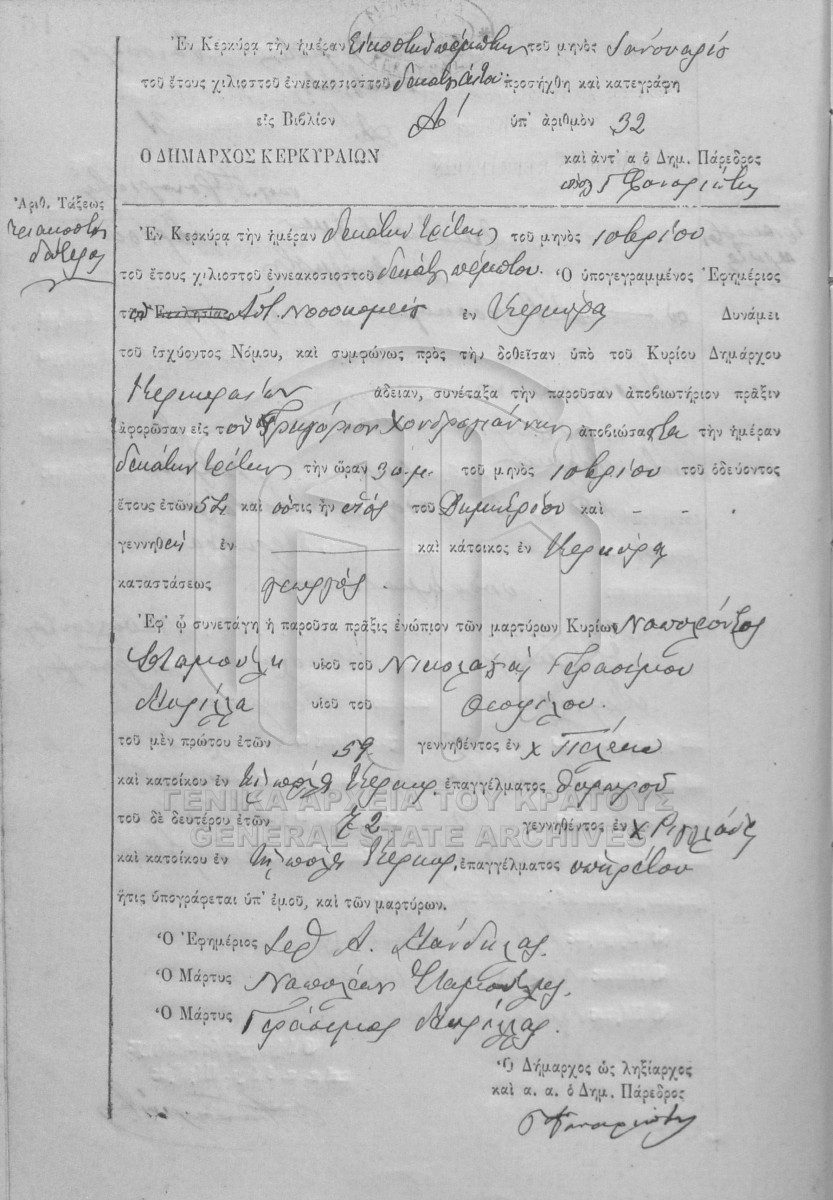 Ἐν Κερκύρᾳ τὴν ἡμέραν Εἰκοστὴν πέμπτην τοῦ μηνὸς Ἰανουαρίου
τοῦ ἔτους χιλιοστοῦ ἐννεακοσιοστοῦ προσήχθη καὶ κατεγράφη
εἰς Βιβλίον Α' ὑπ' ἀριθμὸν 32
Ο ΔΗΜΑΡΧΟΣ ΚΕΡΚΥΡΑΙΩΝ
καὶ ἀντ' α ὁ Δημ. Πάρεδρος
Ἀριθ. Τάξεως
τριακοστὸς
δεύτερος
Ἐν Κερκύρᾳ τὴν ἡμέραν δεκάτην τρίτην τοῦ μηνὸς 10βρίου
τοῦ ἔτους χιλιοστοῦ ἐννεακοσιοστοῦ δεκάτου πέμπτου. Ὁ ὑπογεγραμμένος Ἐφημέριος
τοῦ Ἐκκλησίας Νοσοκομείου ἐν Κερκύρᾳ Δυνάμει
τοῦ ἰσχύοντος Νόμου, καὶ συμφώνως πρὸς τὴν δοθεῖσαν ὑπὸ τοῦ Κυρίου Δημάρχου
Κερκυραίων ἄδειαν, συνέταξα τὴν παροῦσαν ἀποβιωτήριον πρᾶξιν
ἀφορῶσαν εἰς τὸν Γρηγόριον Χονδρογιάννην ἀποβιώσαντα τὴν ἡμέραν
δεκάτην τρίτην τὴν ὥραν 3 π.μ. τοῦ μηνὸς 10βρίου τοῦ ὁδεύοντος
ἔτους ἐτῶν 54 καὶ ὅστις ἦν υἱὸς τοῦ Δημητρίου καὶ - - -
γεννηθεὶς ἐν καὶ κάτοικος ἐν Κερκύρᾳ
καταστάσεως γεωργός.
Ἐφ' ᾧ συνετάγη ἡ παροῦσα πρᾶξις ἐνώπιον τῶν μαρτύρων Κυρίων Ναπολέοντος
Σταμούλη υἱοῦ τοῦ Νικολάου καὶ Γερασίμου
υἱοῦ τοῦ Θεοφίλου.
τοῦ μὲν πρώτου ἐτῶν 59 γεννηθέντος ἐν χ Πέλεκα
καὶ κατοίκου ἐν τῇ πόλει Κερκύρ. ἐπαγγέλματος θυρωροῦ
ΓΕΝΙΚΑ ΑΡΧΕΙΑ ΤΟΥ ΚΡΑΤΟΥΣ
τοῦ δὲ δευτέρου ἐτῶν 42 γεννηθέντος ἐν χ
GENERAL STATE ARCHIVES
καὶ κατοίκου ἐν τῇ πόλει Κερκύρ. ἐπαγγέλματος ὑπηρέτου
ἥτις ὑπογράφεται ὑπ' ἐμοῦ, καὶ τῶν μαρτύρων.
Ὁ Ἐφημέριος
Ὁ Μάρτυς Ναπολέων Σταμούλης
Ὁ Μάρτυς Γεράσιμος
Ὁ Δήμαρχος ὡς ληξίαρχος
καὶ α. α. ὁ Δημ. Πάρεδρος